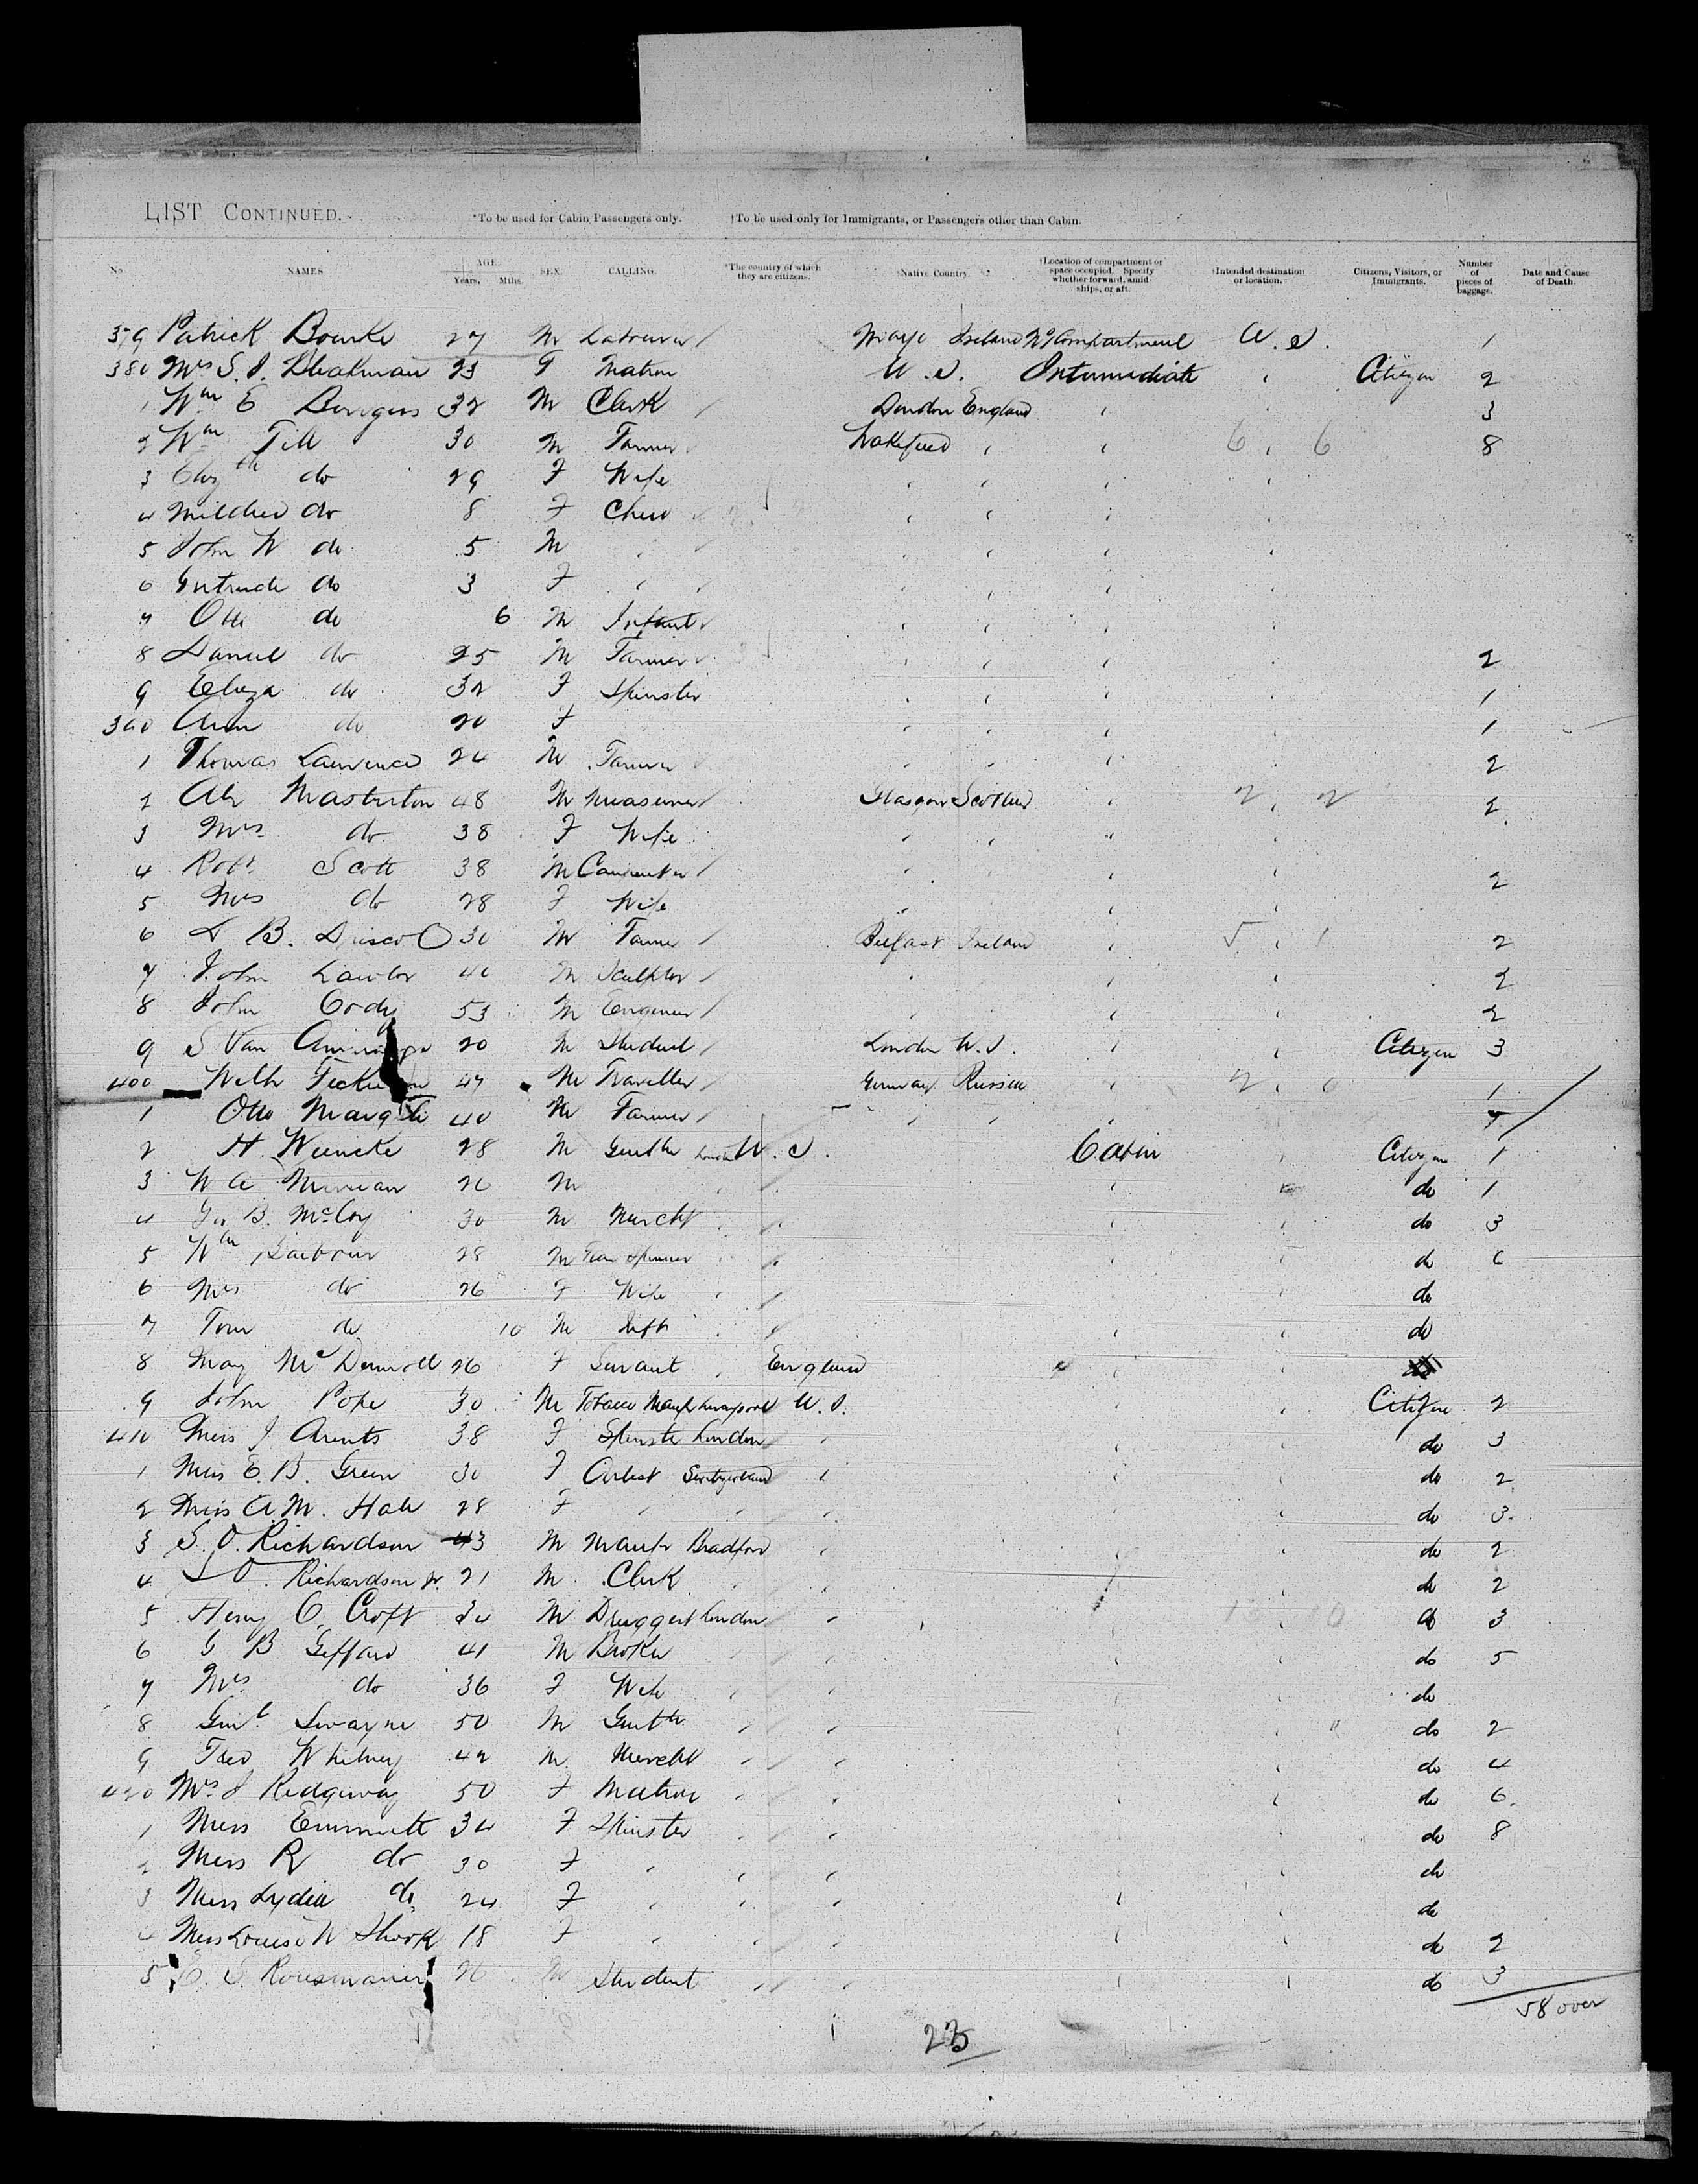 LIST CONTINUED. *To be used for Cabin Passengers only. †To be used only for Immigrants, or Passengers other than Cabin.
No. NAMES AGE. Years, Mths. SEX. CALLING. *The country of which they are citizens. †Native Country. †Location of compartment or space occupied. Specify whether forward, amidships, or aft. †Intended destination or location. Citizens, Visitors, or Immigrants. Number of pieces of baggage. Date and Cause of Death.
379 Patrick Bourke 27 M Labourer Mayo Ireland Compartment U.S. 1
380 Mrs S. J. 23 F Matron U.S. Intermediate Citizen 2
1 Wm E Burgess 32 M Clerk London England 3
2 Wm Till 30 M Farmer Wakefield 6 6 8
3 Elizth do 29 F Wife
4 Mildred do 8 F Child
5 John W do 5 M
6 Gertrude do 3 F
7 Otto do 6 M Infant
8 Daniel do 25 M Farmer 2
9 Eliza do 32 F Spinster 1
390 Ann do 20 F 1
1 Thomas Lawrence 24 M Farmer 2
2 Alx Masterton 48 M Measurer Glasgow Scotland 2 2 2
3 Mrs do 38 F Wife
4 Robt Scott 38 M Carpenter 2
5 Mrs do 28 F Wife
6 D. B. Driscoll 30 M Farmer Belfast Ireland 5 1 2
7 John Lawlor 40 M Sculptor 2
8 John Cody 53 M Engineer 2
9 S Van 20 M Student London U.S. Citizen 3
400 Wilh 47 M Traveller Germany Russia 2 0 1
1 Otto 40 M Farmer 7
2 H. Wiencke 28 M Gentln London U.S. Cabin Citizen 1
3 W A Merrian 26 M do 1
4 Geo B. McCoy 30 M Mercht do 3
5 Wm Barbour 28 M Flax Spinner do 6
6 Mrs do 26 F Wife do
7 Tom do 10 M Inft do
8 May McDermott 26 F Servant England
9 John Pope 30 M Tobacco Manf Liverpool U.S. Citizen 2
410 Miss J Arents 38 F Spinster London do 3
1 Miss E. B. Green 30 F Artist Switzerland do 2
2 Miss A. M. Hale 28 F do 3
3 S. O. Richardson 43 M Manfr Bradford do 2
4 S O. Richardson Jr. 21 M Clerk do 2
5 Henry C. Croft 34 M Druggist London do 3
6 G B Giffard 41 M Broker do 5
7 Mrs do 36 F Wife do
8 Genl. Swayne 50 M Gentln do 2
9 Fred Whitney 42 M Mercht do 4
420 Mrs J Ridgway 50 F Matron do 6
1 Miss Emmett 34 F Spinster do 8
2 Miss R do 30 F do
3 Miss Lydia do 24 F do
4 Miss Louise W Shook 18 F do 2
5 E. S. Rousmanier 26 M Student do 3
58 over